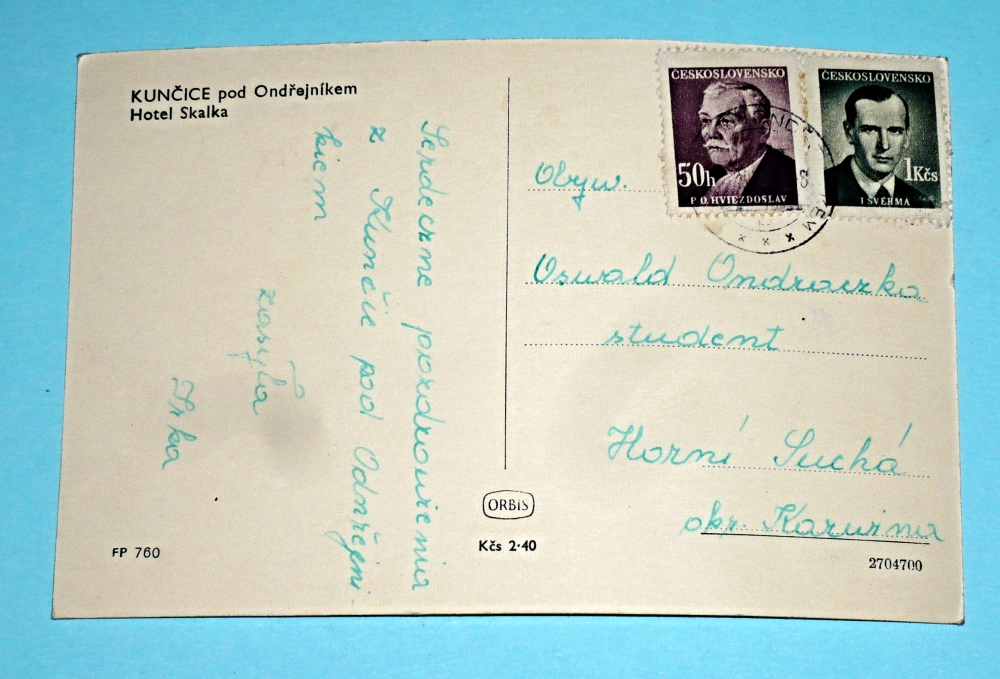 KUNČICE pod Ondřejníkem
Hotel Skalka
Serdeczne pozdrowienia
z Kunčic pod Odnřejni-
kiem
zasyła
Irka
FP 760
ORBIS
Kčs 2·40
ČESKOSLOVENSKO
50h
P.O. HVIEZDOSLAV
ČESKOSLOVENSKO
1Kčs
I ŠVERMA
Obyw.
Oswald Ondraczka
student
Horní Suchá
okr. Karviná
2704700